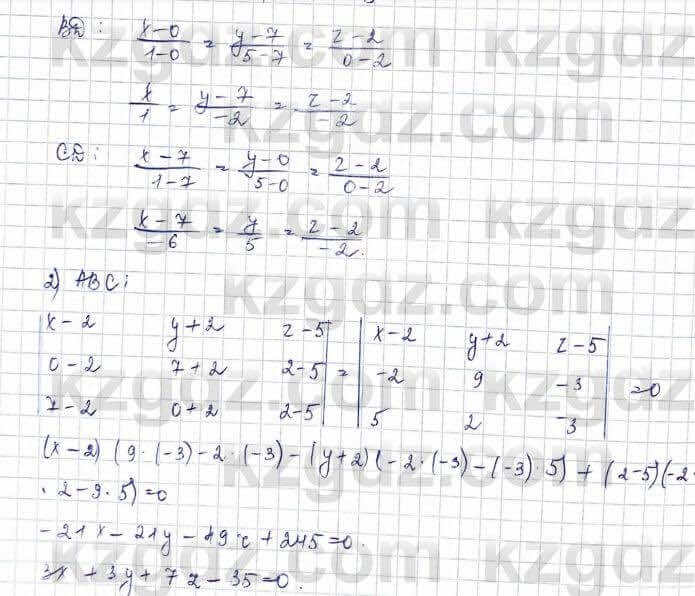 BD: (x-0)/(1-0) = (y-7)/(5-7) = (z-2)/(0-2)
x/1 = (y-7)/(-2) = (z-2)/(-2)
CD: (x-7)/(1-7) = (y-0)/(5-0) = (z-2)/(0-2)
(x-7)/(-6) = y/5 = (z-2)/(-2).
2) ABC:
|x-2 y+2 z-5| = |x-2 y+2 z-5| = 0
|0-2 7+2 2-5| |-2 9 -3|
|7-2 0+2 2-5| |5 2 -3|
(x-2)(9·(-3)-2·(-3)-(y+2)(-2·(-3)-(-3)·5)+(z-5)(-2·
·2-9·5)=0
-21x-21y-49z+245=0.
3x+3y+7z-35=0.
kzgdz.com